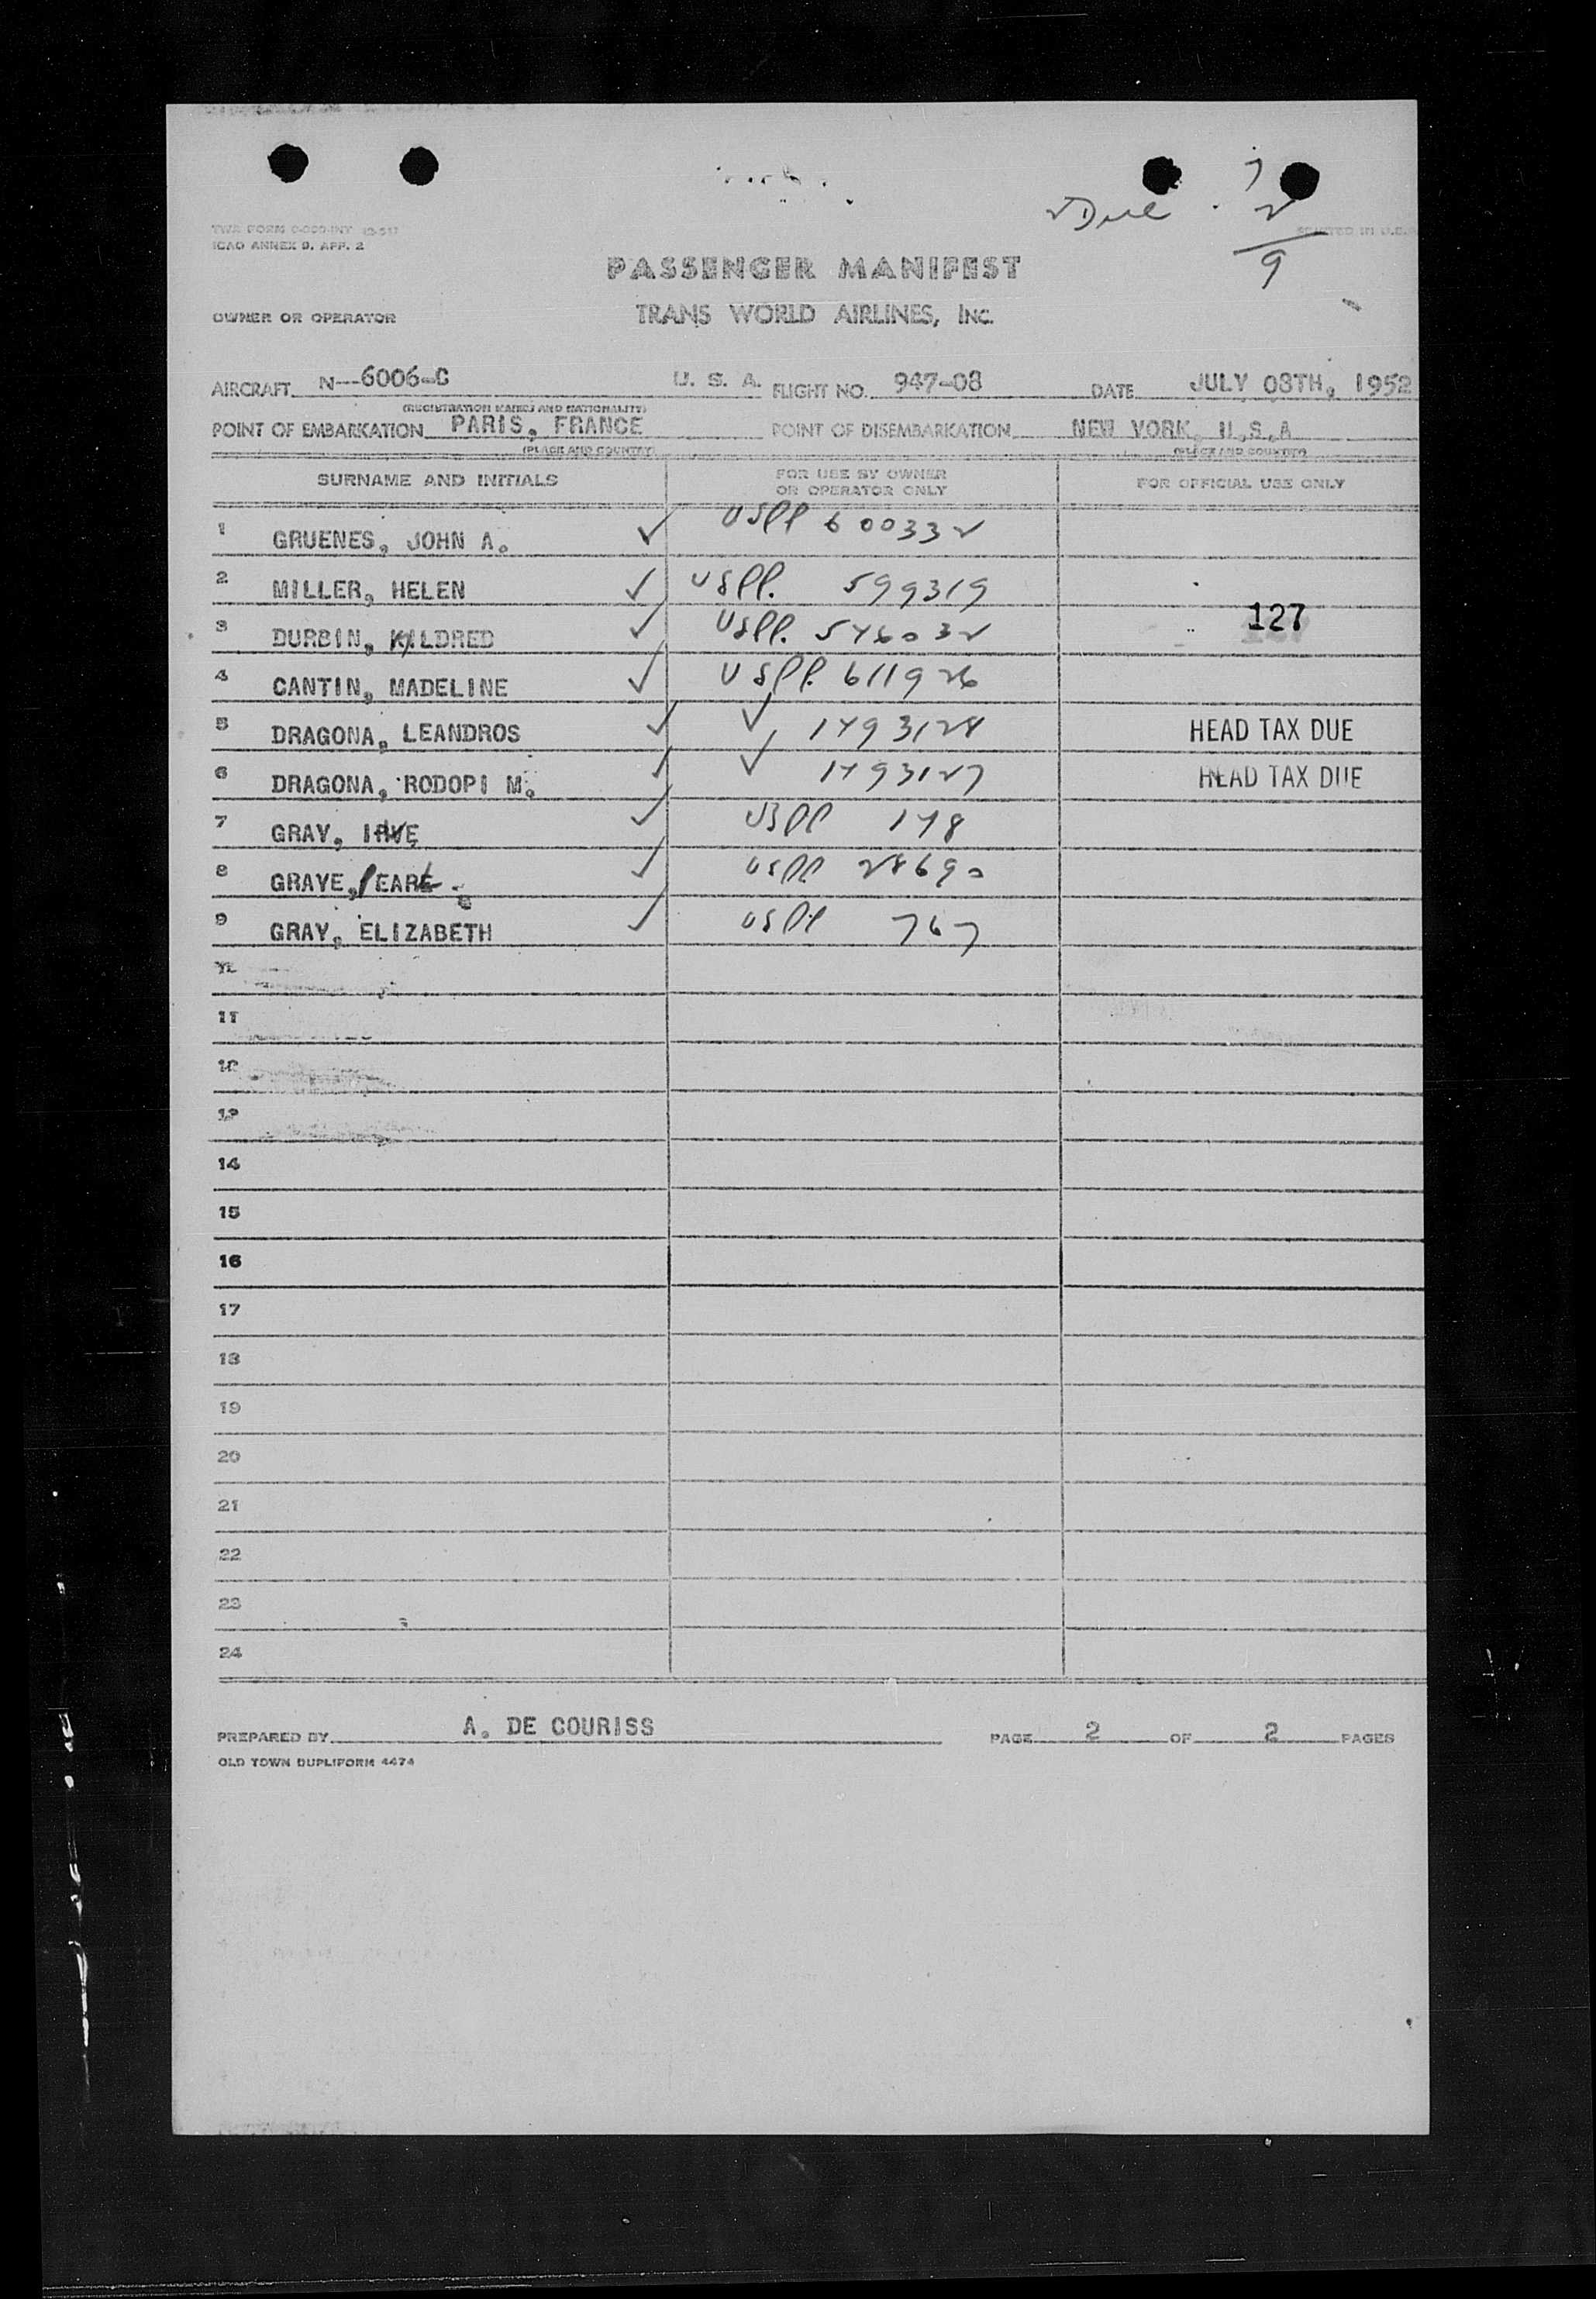 7
✓Due 2
9
ICAO ANNEX 9, APP. 2
PRINTED IN U.S.A.
PASSENGER MANIFEST
OWNER OR OPERATOR TRANS WORLD AIRLINES, INC.
AIRCRAFT N--6006-C U. S. A. FLIGHT NO. 947-08 DATE JULY 08TH, 1952
(REGISTRATION MARKS AND NATIONALITY)
POINT OF EMBARKATION PARIS, FRANCE POINT OF DISEMBARKATION NEW YORK, U.S.A
(PLACE AND COUNTRY) (PLACE AND COUNTRY)
SURNAME AND INITIALS FOR USE BY OWNER OR OPERATOR ONLY FOR OFFICIAL USE ONLY
1 GRUENES, JOHN A. ✓ USPP 600332
2 MILLER, HELEN ✓ USPP. 599319
127
3 DURBIN, MILDRED ✓ USPP. 546032
4 CANTIN, MADELINE ✓ USPP. 611926
5 DRAGONA, LEANDROS ✓ ✓ 1493128 HEAD TAX DUE
6 DRAGONA, RODOPI M. ✓ ✓ 1493127 HEAD TAX DUE
7 GRAY, ✓ USPP 148
8 ✓ USPP 28690
9 GRAY, ELIZABETH ✓ USPP 767
11
12
13
14
15
16
17
18
19
20
21
22
23
24
PREPARED BY A. DE COURISS PAGE 2 OF 2 PAGES
OLD TOWN DUPLIFORM 4474